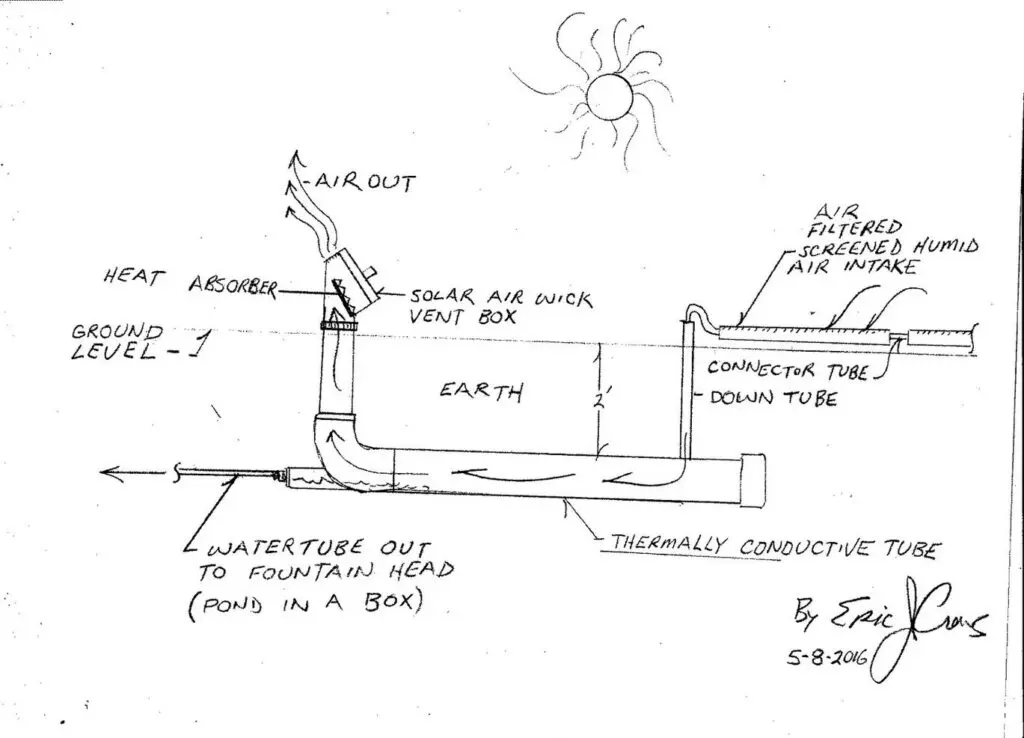 AIR OUT
AIR
FILTERED
SCREENED HUMID
AIR INTAKE
HEAT ABSORBER
SOLAR AIR WICK
VENT BOX
GROUND
LEVEL - 1
EARTH
2'
CONNECTOR TUBE
DOWN TUBE
WATERTUBE OUT
TO FOUNTAIN HEAD
(POND IN A BOX)
THERMALLY CONDUCTIVE TUBE
By Eric J
5-8-2016